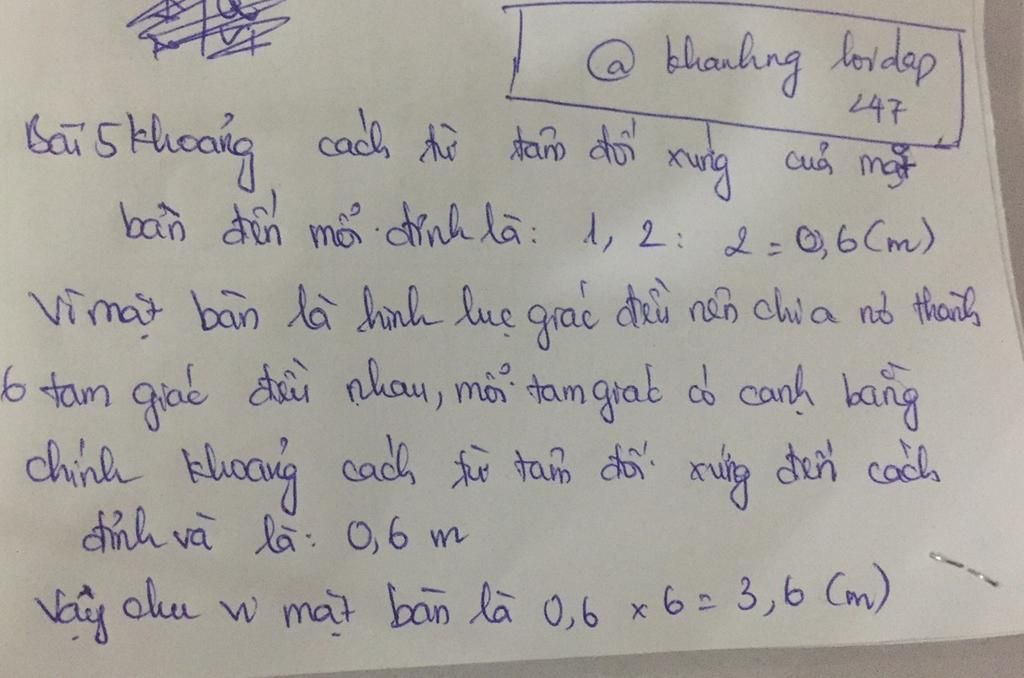 @ khanhng loidap
247
Bài 5 khoảng cách từ tâm đối xứng của mặt
bàn đến mỗi đỉnh là: 1,2 : 2 = 0,6 (m)
Vì mặt bàn là hình lục giác đều nên chia nó thành
6 tam giác đều nhau, mỗi tam giác có cạnh bằng
chính khoảng cách từ tâm đối xứng đến cách
đỉnh và là: 0,6 m
Vậy chu vi mặt bàn là 0,6 x 6 = 3,6 (m)